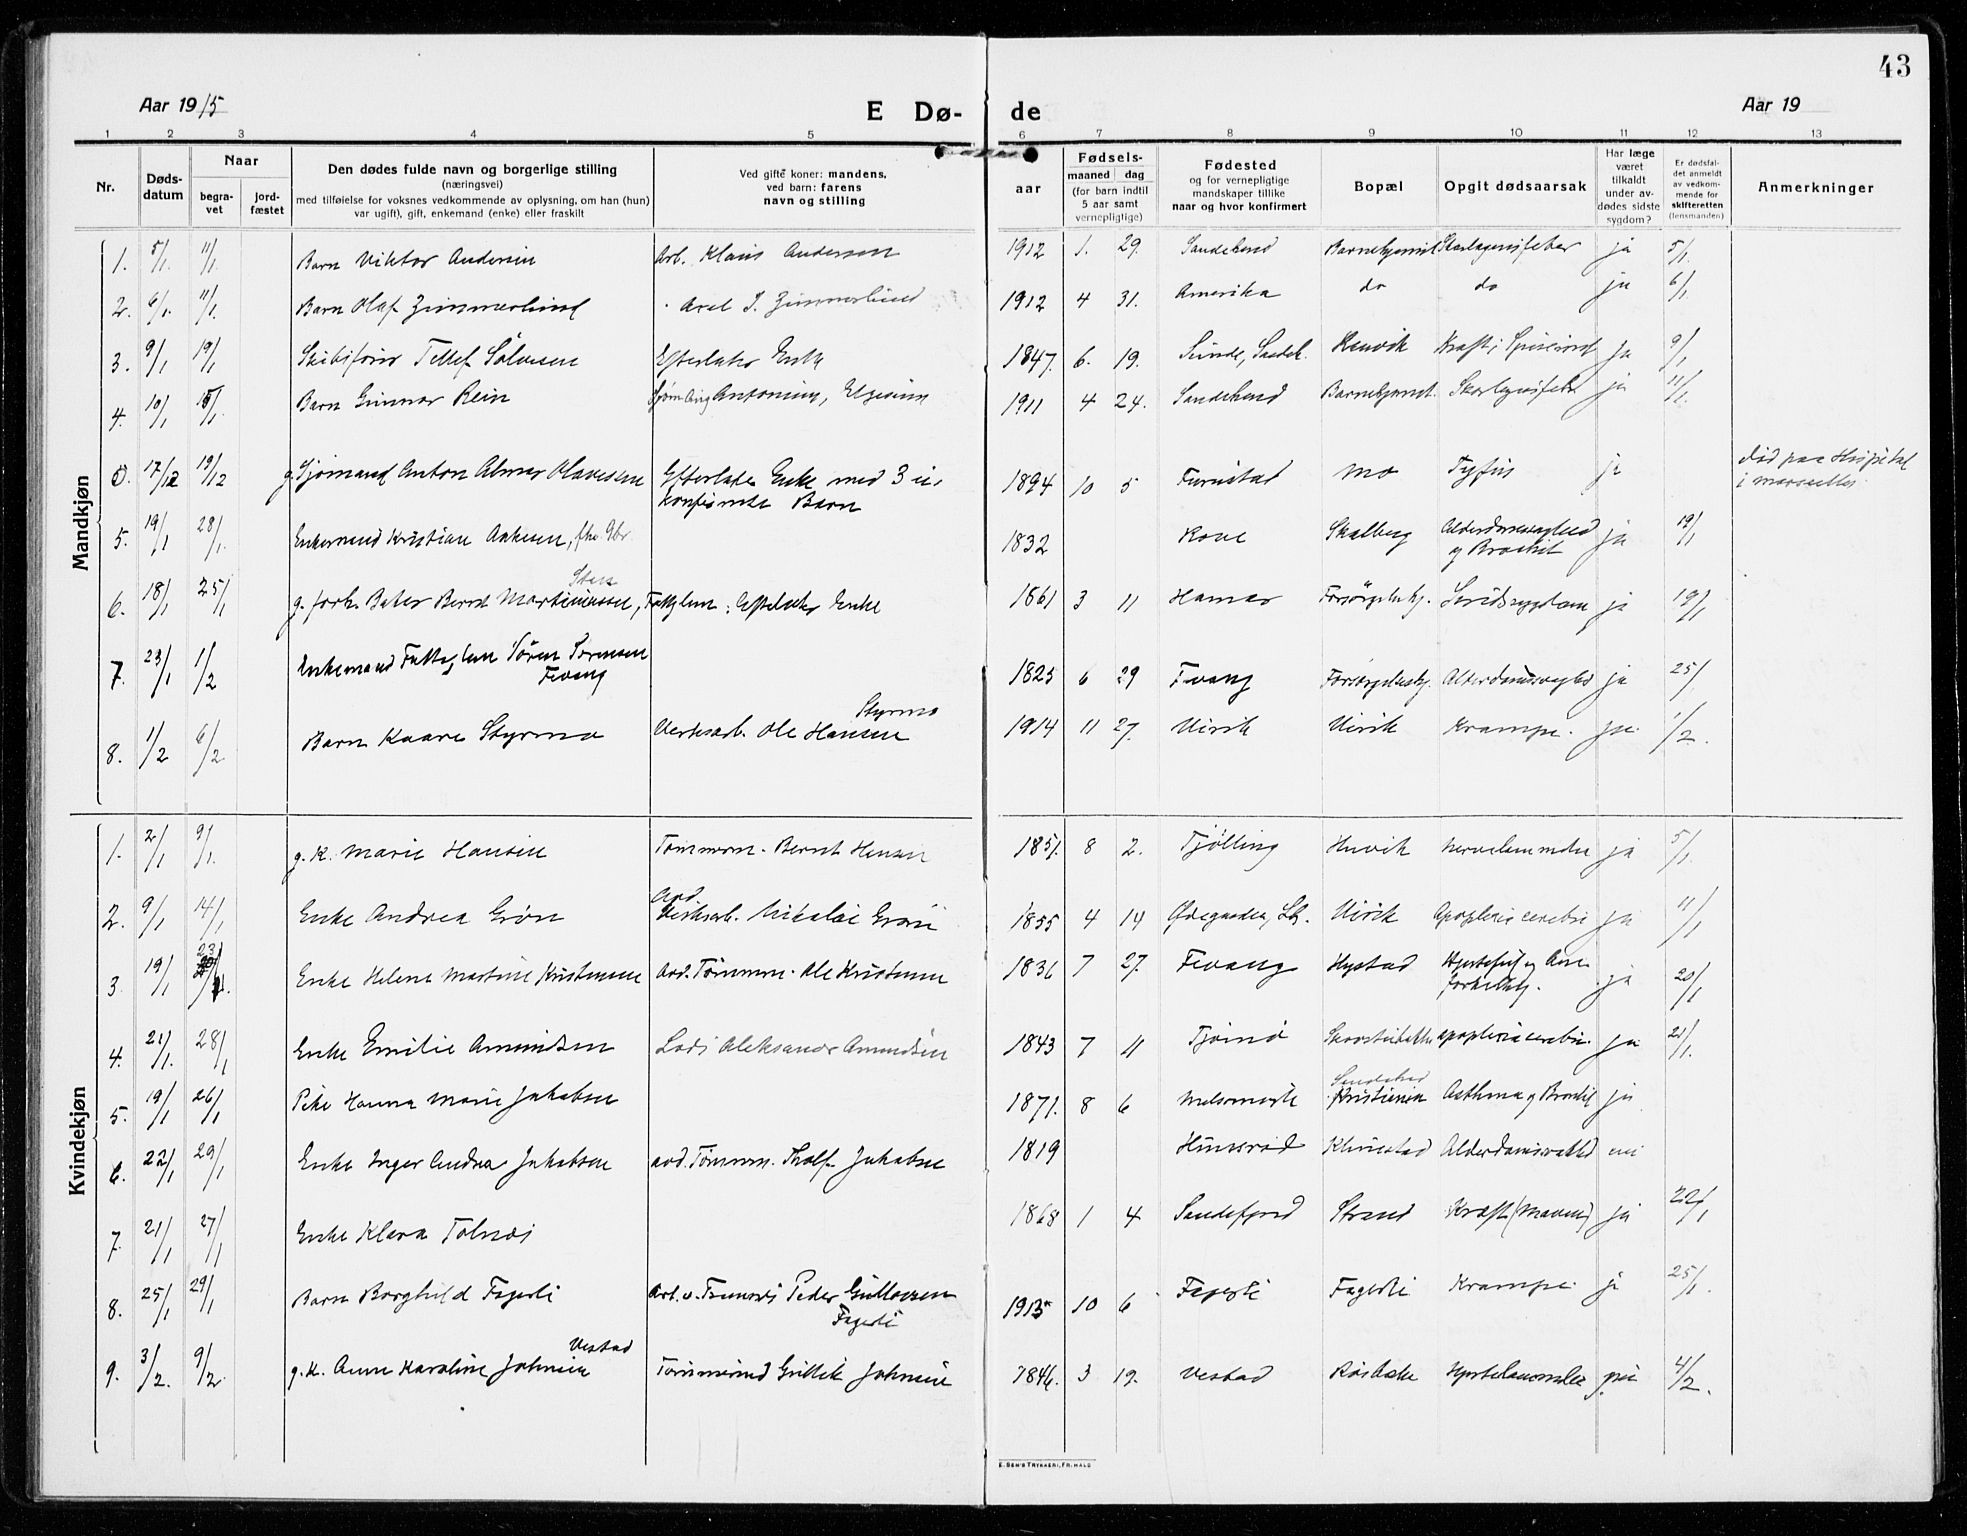 43
Aar 1915
E Dø- de
Aar 19
1 2 3 4 5 6 7 8 9 10 11 12 13
Nr.
Døds-
datum
Naar
begra-
vet
jord-
fæstet
Den dødes fulde navn og borgerlige stilling
(næringsvei)
med tilføielse for voksnes vedkommende av oplysning, om han (hun)
var ugift), gift, enkemand (enke) eller fraskilt
Ved gifte koner: mandens,
ved barn: farens
navn og stilling
aar
Fødsels-
maaned dag
(for barn indtil
5 aar samt
vernepligtige)
Fødested
og for vernepligtige
mandskaper tillike
naar og hvor konfirmert
Bopæl
Opgit dødsaarsak
Har læge
været
tilkaldt
under av-
dødes sidste
sygdom?
Er dødsfal-
det anmeldt
av vedkom-
mende for
skifteretten
(lensmanden)
Anmerkninger
Mandkjøn
1. 5/1 11/1 Barn Viktor Andersen Arb. Klaus Andersen 1912 1. 29. Sandeherad Skarlagensfeber ja 5/1
2. 6/1 11/1 Barn Olaf Zimmerlund Axel I. Zimmerlund 1912 4 31. Amerika do do ja 6/1
3. 9/1 19/1 Skibsfører Tellef Solvesen Efterlater Enke 1847. 6. 19. Sunde, Sandeh. Kraft i Spiserøret ja 9/1
4. 10/1 Barn Gunnar Rein Antonius, 1911 4 24. Sandeherad Skarlagensfeber ja 11/1
0. 17/12 19/12 g. Sjømand Anton Almar Olavesen Efterlater Enke med 3 u.
konfirmerte Barn
1894 10 5 Furustad Mo Tyfus ja død paa Hospital
i Marseilles
5. 19/1 28/1 Enkemand Kristian Aakesen, fhv. Gbr. 1832 Skalberg Alderdomssvaghed
og Bronkit ja 19/1
6. 18/1 25/1 g. forh. Baker Bernt Martiniussen, Fattiglem; Efterlater Enke 1861 3 11 Hamar Forsørgelseshj. ja 19/1
7. 23/1 1/2 Enkemand Fattiglem Søren Sørensen
Fevang
1825 6 29 Fevang Forsørgelseshj. Alderdomssvaghed ja 25/1
Styrmo
8. 1/2 6/2 Barn Kaare Styrmo Verksarb. Ole Hansen 1914 11 27. Virik Virik Krampe. ja 1/2.
Kvindekjøn
1. 2/1 9/1 g. K. Marie Hansen Tømmerm. Bernt Hansen 1851. 8 2. Tjølling ja 5/1
avd.
2. 9/1 14/1 Enke Andrea Grøn Verksarb. Nikolai Grøn 1855 4 14 Virik Apoplexia cerebri ja 11/1
3. 19/1 23/1 Enke Helene Martine Kristensen avd. Tømmm. Ole Kristensen 1836 7 27. Fevang Hystad Hjertefeil og Aare-
forkalkn. ja 20/1
4. 21/1 28/1 Enke Emilie Amundsen Lods Aleksander Amundsen 1843 7 11 Tjømø apoplexia cerebri. ja 21/1
Sandeherad
5. 19/1 26/1 Pike Hanna Marie Jakobsen 1871. 8 6 Melsomvik Kristiania Asthma og Bronkit ja
6. 22/1 29/1 Enke Inger Andrea Jakobsen avd. Tømmm. Jakobsen 1819 Hunsrød Klinestad nei
7. 21/1 27/1 Enke Klara Tolnæs 1868 1 4 Sandefjord Strand Kræft (Maven) ja 22/1
8. 25/1 29/1 Barn Borghild Fagerli Peder Gulliksen
Fagerli
1913 10 6 Fagerli Fagerli Krampe. ja 25/1
Vestad
9. 3/2. 9/2 g. K. Anne Karoline Johnsen Tømmermd Gullik Johnsen 1846. 3 19. Vestad Hjertelammelse 4/2.
E. SEM'S TRYKKERI, FR.HALD